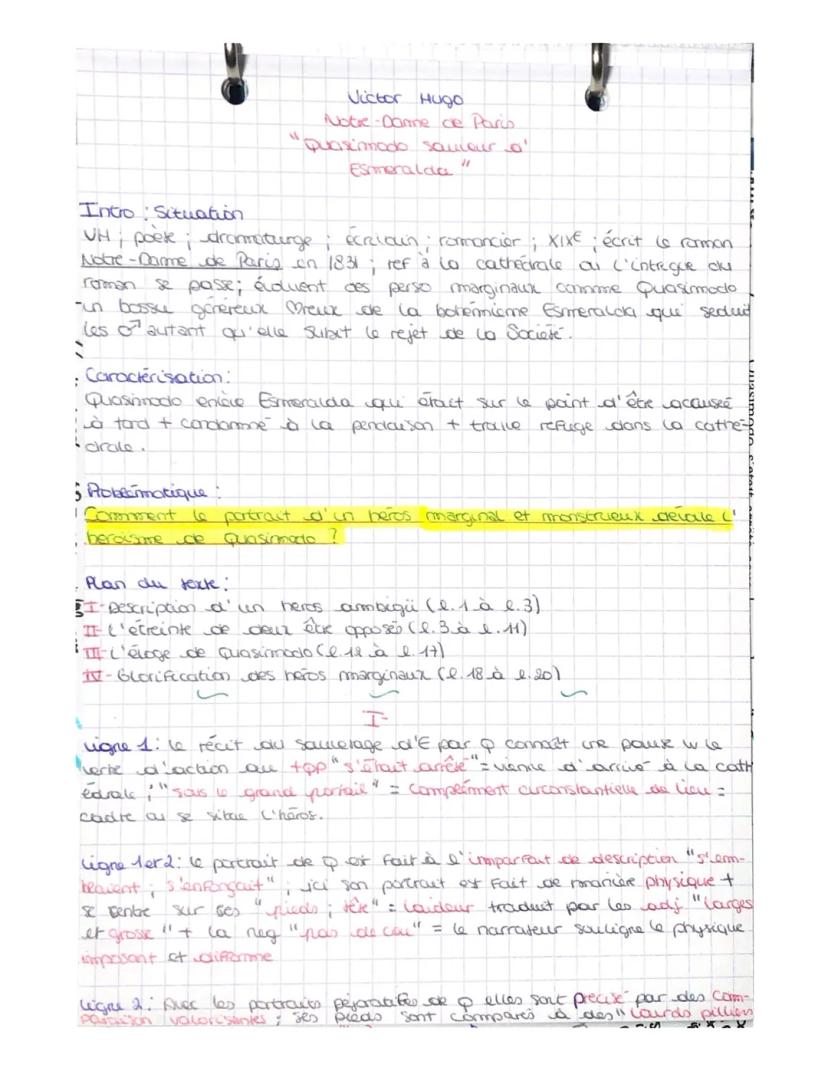 Victor Hugo
Notre-Dame de Paris
"Quasimodo sauveur d'
Esmeralda"
Intro : Situation
VH ; poète ; dramaturge ; écrivain ; romancier ; XIXe ; écrit le roman
Notre-Dame de Paris en 1831 ; ref à la cathédrale ou l'intrigue du
roman se passe; évoluent des perso marginaux comme Quasimodo
un bossu généreux Mreux de la bohémienne Esmeralda qui séduit
les ♂ autant qu'elle subit le rejet de la Société.
Caractérisation :
Quasimodo enlève Esmeralda qui était sur le point d'être accusée
à tord + condamné à la pendaison + trouve refuge dans la cathé-
drale.
Problématique :
Comment le portrait d'un héros marginal et monstrueux dévoile l'
héroïsme de Quasimodo ?
Plan du texte :
I- Description d'un heros ambigü (l.1 à l.3)
II- L'étreinte de deux être opposés (l.3 à l.11)
III- L'éloge de Quasimodo (l.12 à l.17)
IV- Glorification des héros marginaux (l.18 à l.20)
I-
Ligne 1 : le récit du sauvetage d'E par Q connaît une pause w le
verbe d'action au tqp "s'était arrêté" = d'arrivé à la cath
édrale ; "sous le grand portail" = complément circonstantielle de lieu =
cadre ou se situe l'héros.
Ligne 1 et 2 : le portrait de Q est fait à l'imparfait de description "s'em-
blaient ; s'enfonçait" ; ici son portrait est fait de manière physique +
se centre sur ses "pieds ; tête" = laideur traduit par les adj "larges
et grosse" + la neg "pas de cou" = le narrateur souligne le physique
imposant et difforme
Ligne 2 : Avec les portraits péjoratifes de Q elles sont précisé par des com-
paraison valorisantes ; ses pieds sont comparés à des "lourds pilliers